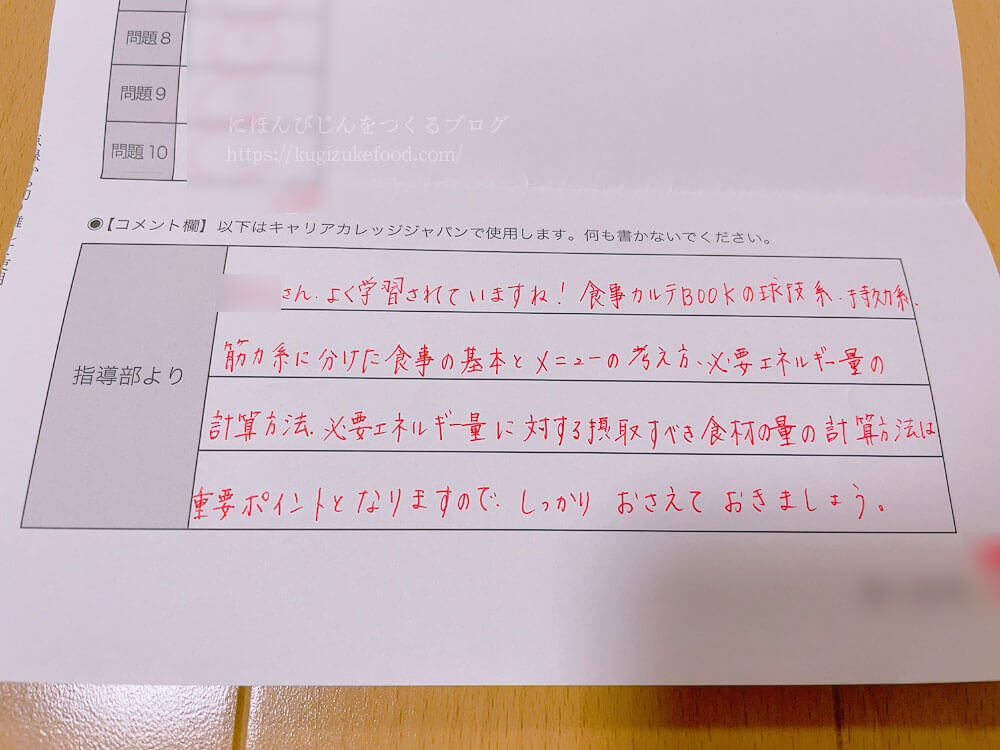 問題8
問題9
にほんびじんをつくるブログ
https://kugizukefood.com/
問題10
◉【コメント欄】以下はキャリアカレッジジャパンで使用します。何も書かないでください。
指導部より
さん、よく学習されていますね！食事カルテBOOKの球技系、持久系、
筋力系に分けた食事の基本とメニューの考え方、必要エネルギー量の
計算方法、必要エネルギー量に対する摂取すべき食材の量の計算方法は
重要ポイントとなりますので、しっかりおさえておきましょう。